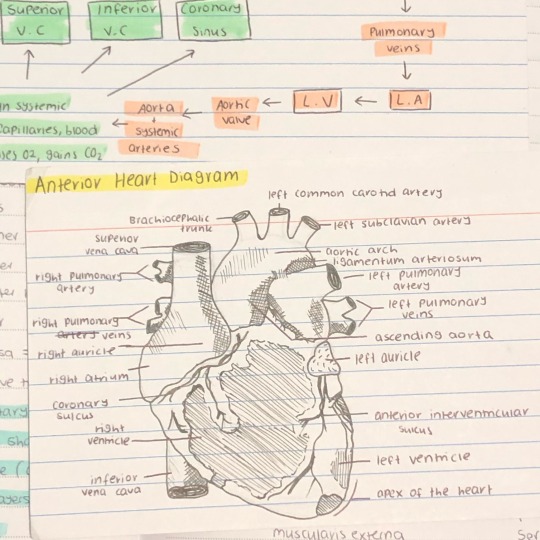 Superior
V.C
Inferior
V.C
Coronary
Sinus
Pulmonary
veins
L.A
L.V
Aortic
valve
Aorta
systemic
arteries
in systemic
capillaries, blood
O2, gains CO2
Anterior Heart Diagram
left common carotid artery
Brachiocephalic
trunk
left subclavian artery
superior
vena cava
aortic arch
ligamentum arteriosum
right pulmonary
artery
left pulmonary
artery
right pulmonary
artery veins
left pulmonary
veins
ascending aorta
right auricle
left auricle
right atrium
coronary
sulcus
anterior interventricular
sulcus
right
ventricle
left ventricle
inferior
vena cava
apex of the heart
muscularis externa